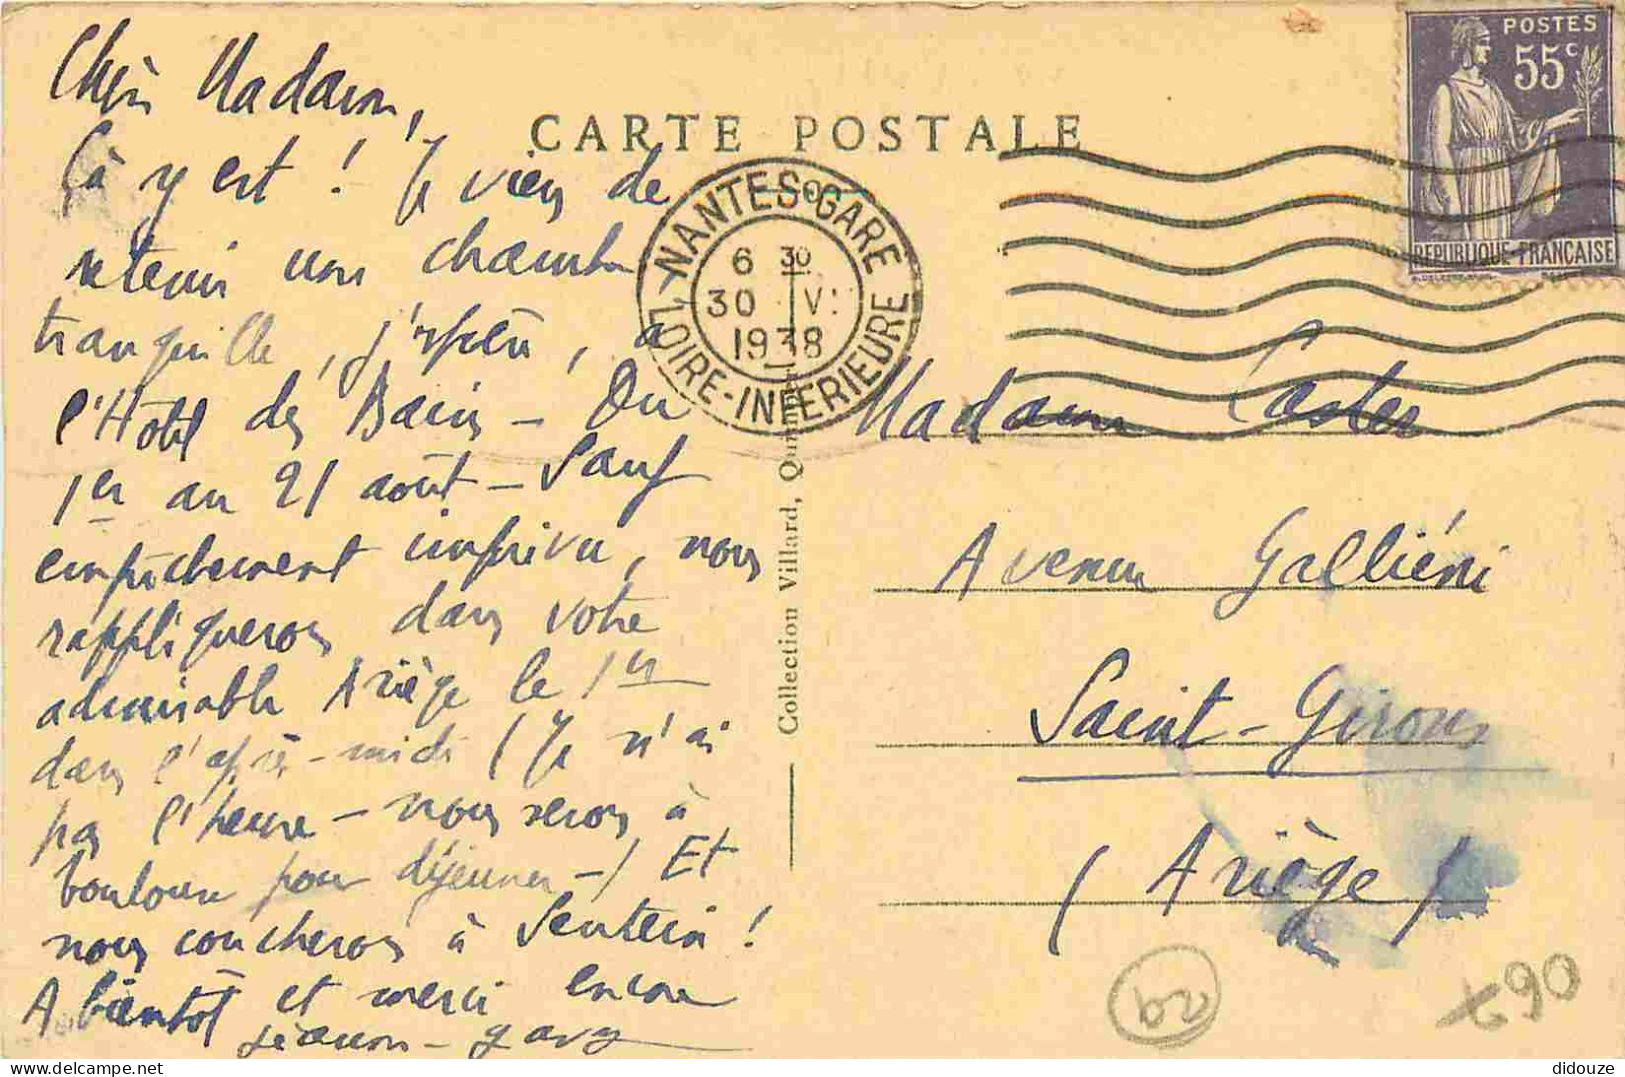 Chère Madame,
Çà y est ! Je viens de
retenir une chambre
tranquille, j'espère, à
l'Hôtel des Bains - Du
1er au 21 août - Sauf
empêchement imprévu, nous
rappliquerons dans votre
admirable Ariège le 1er
dans l'après-midi (Je n'ai
pas l'heure - nous serons à
Toulouse pour déjeuner -) Et
nous coucherons à Sentein !
A bientôt et merci encore
CARTE POSTALE
NANTES-GARE
6 30
30 V:
1938
LOIRE-INFERIEURE
POSTES
55c
REPUBLIQUE FRANÇAISE
Collection Villard, Quimper
Madame Castex
Avenue Galliéni
Saint-Girons
(Ariège)
29
690
didouze